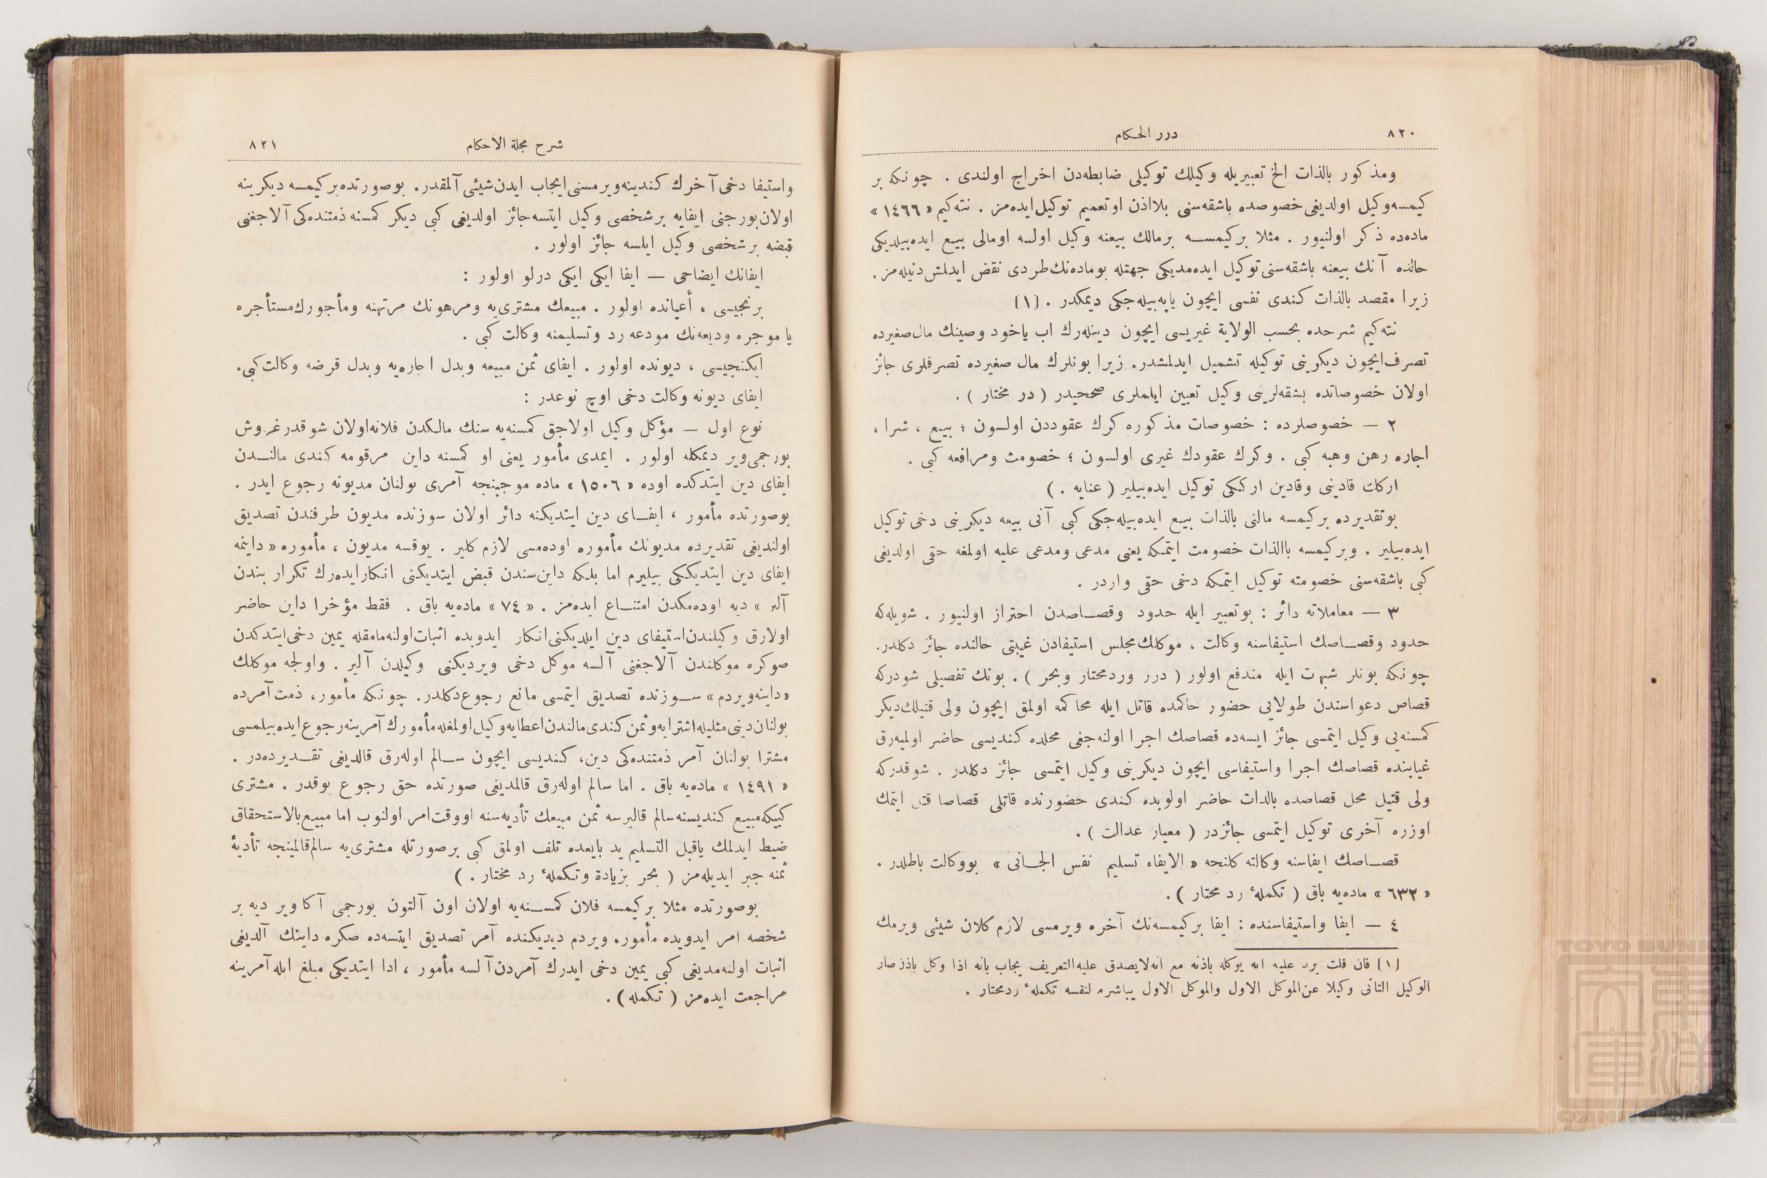 ٨٢٠
درر الحكام
ومذكور بالذات الخ تعبيريله وكيلك توكيلى ضابطه‌دن اخراج اولندى . چونكه بر
كيمسه وكيل اولديغى خصوصده باشقه‌سنى بلااذن او تعميم توكيل ايده‌مز . نته‌كيم «١٤٦٦»
ماده‌ده ذكر اولنيور . مثلا بر كيمســه برمالك بيعنه وكيل اولسه اومالى بيـع ايده‌بيلديكى
حالده آنك بيعنه باشقه‌سنى توكيل ايده‌مديكى جهتله بوماده‌نك طردى نقض ايدلمش دنيله‌مز .
زيرا مقصد بالذات كندى نفسى ايچون ياپه‌بيله‌جكى ديمكدر . (١)
نته‌كيم شرحده بحسب الولاية غيريسى ايچون دينلەرك اب ياخود وصينك مال صغيرده
تصرف ايچون ديكرينى توكيله تشميل ايدلمشدر . زيرا بونلرك مال صغيرده تصرفلرى جائز
اولان خصوصاتده بشقه‌لرينى وكيل تعيين ايلملرى صحيحدر ( در مختار ) .
٢ — خصوصلرده : خصوصات مذكوره كرك عقوددن اولسون ؛ بيـع ، شرا ،
اجاره رهن وهبه كبى . وكرك عقودك غيرى اولسون ؛ خصومت ومرافعه كبى .
اركك قادينى وقادين اركيكى توكيل ايده‌بيلير ( عنايه . )
بوتقديرده بركيمسه مالنى بالذات بيـع ايده‌بيله‌جكى كبى آنى بيعه ديكرينى دخى توكيل
ايده‌بيلير . وبر كيمسه باالذات خصومت ايتمكه يعنى مدعى ومدعى عليه اولمغه حقى اولديغى
كبى باشقه‌سنى خصومته توكيل ايتمكه دخى حقى واردر .
٣ — معاملاته دائر : بوتعبير ايله حدود وقصـاصدن احتراز اولنيور . شويله‌كه
حدود وقصـاصك استيفاسنه وكالت ، موكلك مجلس استيفادن غيبتى حالنده جائز دكلدر .
چونكه بونلر شبهت ايله مندفع اولور ( درر وردمختار وبحر ) . بونك تفصيلى شودركه
قصاص دعواسندن طولايى حضور حاكمده قاتل ايله محاكمه اولمق ايچون ولى قتيلك ديكر
كمسنه‌يى وكيل ايتمسى جائز ايسه‌ده قصاصك اجرا اولنه‌جغى محلده كنديسى حاضر اولميه‌رق
غيابنده قصاصك اجرا واستيفاسى ايچون ديكرينى وكيل ايتمسى جائز دكلدر . شوقدركه
ولى قتيل محل قصاصده بالذات حاضر اولوبده كندى حضورنده قاتلى قصاصا قتل ايتمك
اوزره آخرى توكيل ايتمسى جائزدر ( معيار عدالت ) .
قصـاصك ايفاسنه وكالته كلنجه « الايفاء تسليم نفس الجـانى » بووكالت باطلدر .
«٦٣٢» ماده‌يه باق ( تكملهٔ رد مختار ) .
٤ — ايفا واستيفاسنده : ايفا بركيمسه‌نك آخره ويرمسى لازم كلان شيئى ويرمك
(١) فان قلت يرد عليه انه يوكله باذنه مع انه لايصدق عليه التعريف يجاب بانه اذا وكل باذن صار
الوكيل الثانى وكيلا عن الموكل الاول والموكل الاول يباشره لنفسه تكملهٔ ردمختار .
شرح مجلة الاحكام
٨٢١
واستيفا دخى آخرك كندينه ويرمسنى ايجاب ايدن شيئى آلمقدر . بوصورتده بر كيمسه ديكرينه
اولان بورجنى ايفايه بر شخصى وكيل ايتسه جائز اولديغى كبى ديكر كمسنه ذمتنده‌كى آلاجغنى
قبضه بر شخصى وكيل ايلسه جائز اولور .
ايفانك ايضاحى — ايفا ايكى ايكى درلو اولور :
برنجيسى ، أعيانده اولور . مبيعك مشترى‌يه ومرهونك مرتهنه ومأجورك مستأجره
يا موجره وديعه‌نك مودعه رد وتسليمنه وكالت كبى .
ايكنجيسى ، ديونده اولور . ايفاى ثمن مبيعه وبدل اجاره‌يه وبدل قرضه وكالت كبى .
ايفاى ديونه وكالت دخى اوچ نوعدر :
نوع اول — مؤكل وكيل اولاجق كمسنه‌يه سنك مالكدن فلانه اولان شوقدر غروش
بورجمى وير ديمكله اولور . ايمدى مأمور يعنى او كمسنه داين مرقومه كندى مالنـدن
ايفاى دين ايتدكده اوده «١٥٠٦» ماده موجبنجه آمرى بولنان مديونه رجوع ايدر .
بوصورتده مأمور ، ايفـاى دين ايتديكنه دائر اولان سوزنده مديون طرفندن تصديق
اولنديغى تقديرده مديونك مأموره اوده‌مسى لازم كلير . يوقسه مديون ، مأموره « داينمه
ايفاى دين ايتديككى بيليرم اما بلكه داين سندن قبض ايتديكنى انكار ايده‌رك تكرار بندن
آلير » ديه اوده‌مكدن امتنـاع ايده‌مز . «٧٤» ماده‌يه باق . فقط مؤخرا داين حاضر
اولارق وكيلندن استيفاى دين ايلديكنى انكار ايدوبده اثبات اولنه‌مامقله يمين دخى ايتدكدن
صوكره موكلندن آلاجغنى آلسه موكل دخى ويرديكنى وكيلدن آلير . واولجه موكلك
«داينه ويردم» سـوزنده تصديق ايتمسى مانع رجوع دكلدر . چونكه مأمور ، ذمت آمرده
بولنان دينى مثليله اشترايه وثمن كندى مالندن اعطايه وكيل اولمغله مأمورك آمرينه رجوع ايده‌بيلمسى
مشترا بولنان آمر ذمتنده‌كى دين ، كنديسى ايچون سـالم اوله‌رق قالديغى تقـديرده‌در .
«١٤٩١» ماده‌يه باق . اما سالم اوله‌رق قالمديغى صورتده حق رجوع يوقدر . مشترى
كبيكه مبيع كنديسنه سالم قاليرسه ثمن مبيعك تأديه‌سنه اووقت امر اولنوب اما مبيع بالاستحقاق
ضبط ايدلمك ياقبل التسليم يد بايعده تلف اولمق كبى برصورتله مشترى‌يه سالم قالمينجه تأديهٔ
ثمنه جبر ايديله‌مز ( بحر بزيادة وتكملهٔ رد مختار . )
بوصورتده مثلا بر كيمسه فلان كمســنه‌يه اولان اون آلتون بورجمى آكا وير ديه بر
شخصه امر ايدوبده مأمور ، ويردم ديديكنده آمر تصديق ايتسه‌ده صكره داينك آلديغى
اثبات اولنه‌مديغى كبى يمين دخى ايدرك آمردن آلسه مأمور ، ادا ايتديكى مبلغ ايله آمرينه
مراجعت ايده‌مز ( تكمله ) .
TOYO BUNKO